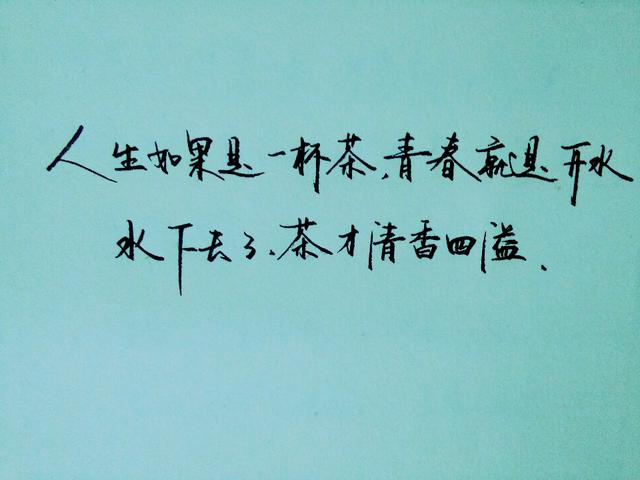 人生如果是一杯茶,青春就是开水
水下去了、茶才清香四溢、